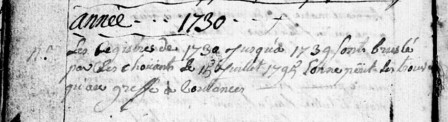 année - - - 1730 - - -
n.ᵃ Les registres de 1730 jusqu'a 1739 sont bruslé
par Les chouants le 15 juillet 1795 Lonne peut les trouver
qu'au greffe de Coutances